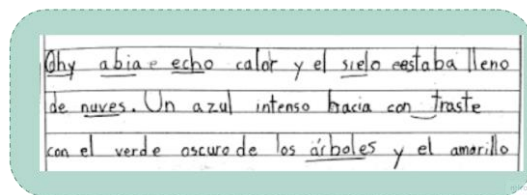 Ohy abia e echo calor y el sielo eestaba lleno
de nuves. Un azul intenso hacia con traste
con el verde oscuro de los árboles y el amarillo